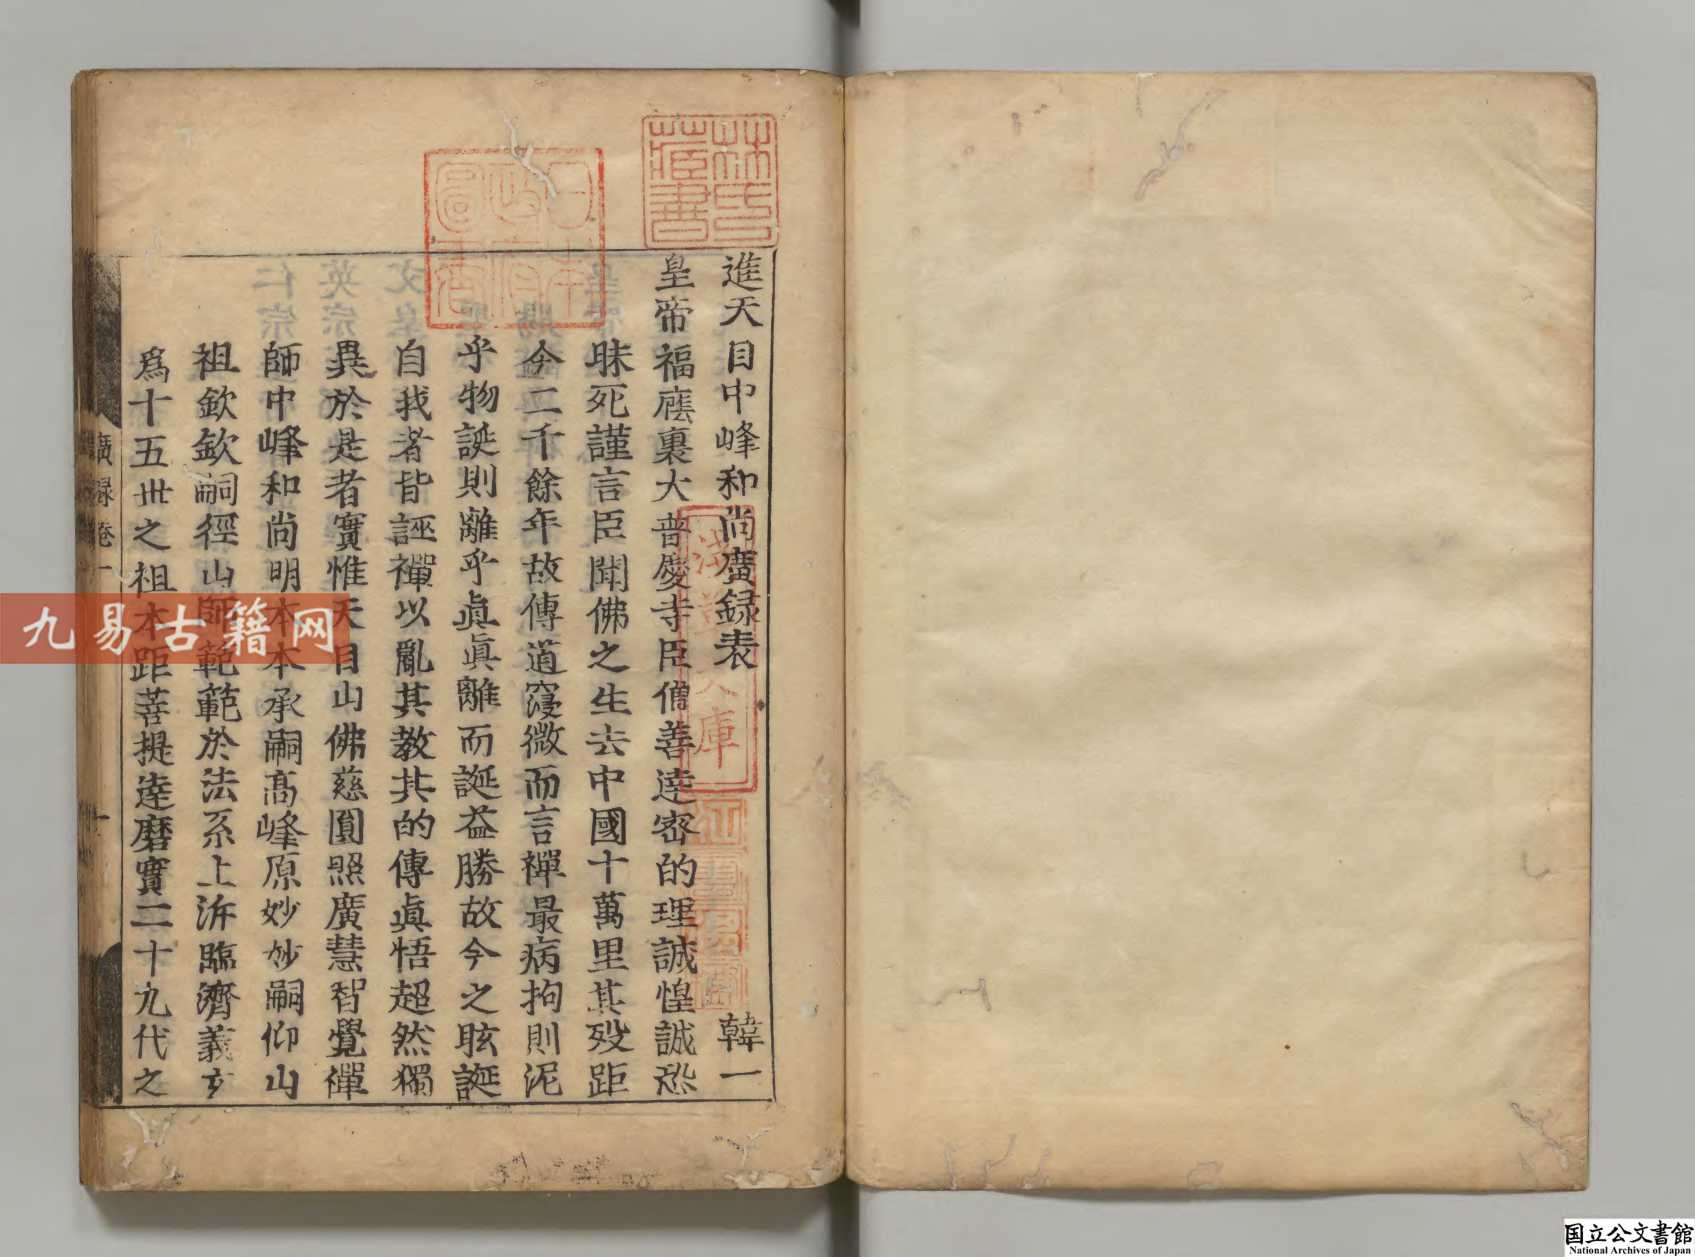 進天目中峰和尚廣録表 韓一
皇帝福廕裏大普慶寺臣僧善達密的理誠惶誠恐
昧死謹言臣聞佛之生去中國十萬里其殁距
今二千餘年故傳道寖微而言禪最病拘則泥
乎物誕則離乎眞眞離而誕益勝故今之眩誕
自我者皆誣禪以亂其教其的傳眞悟超然獨
異於是者實惟天目山佛慈圓照廣慧智覺禪
師中峰和尚明本本承嗣高峰原妙妙嗣仰山
祖欽欽嗣徑山師範範於法系上泝臨濟義玄
爲十五世之祖本距菩提達磨實二十九代之
廣録卷一
林氏藏書
日本政府圖書
淺草文庫
九易古籍网
国立公文書館
National Archives of Japan